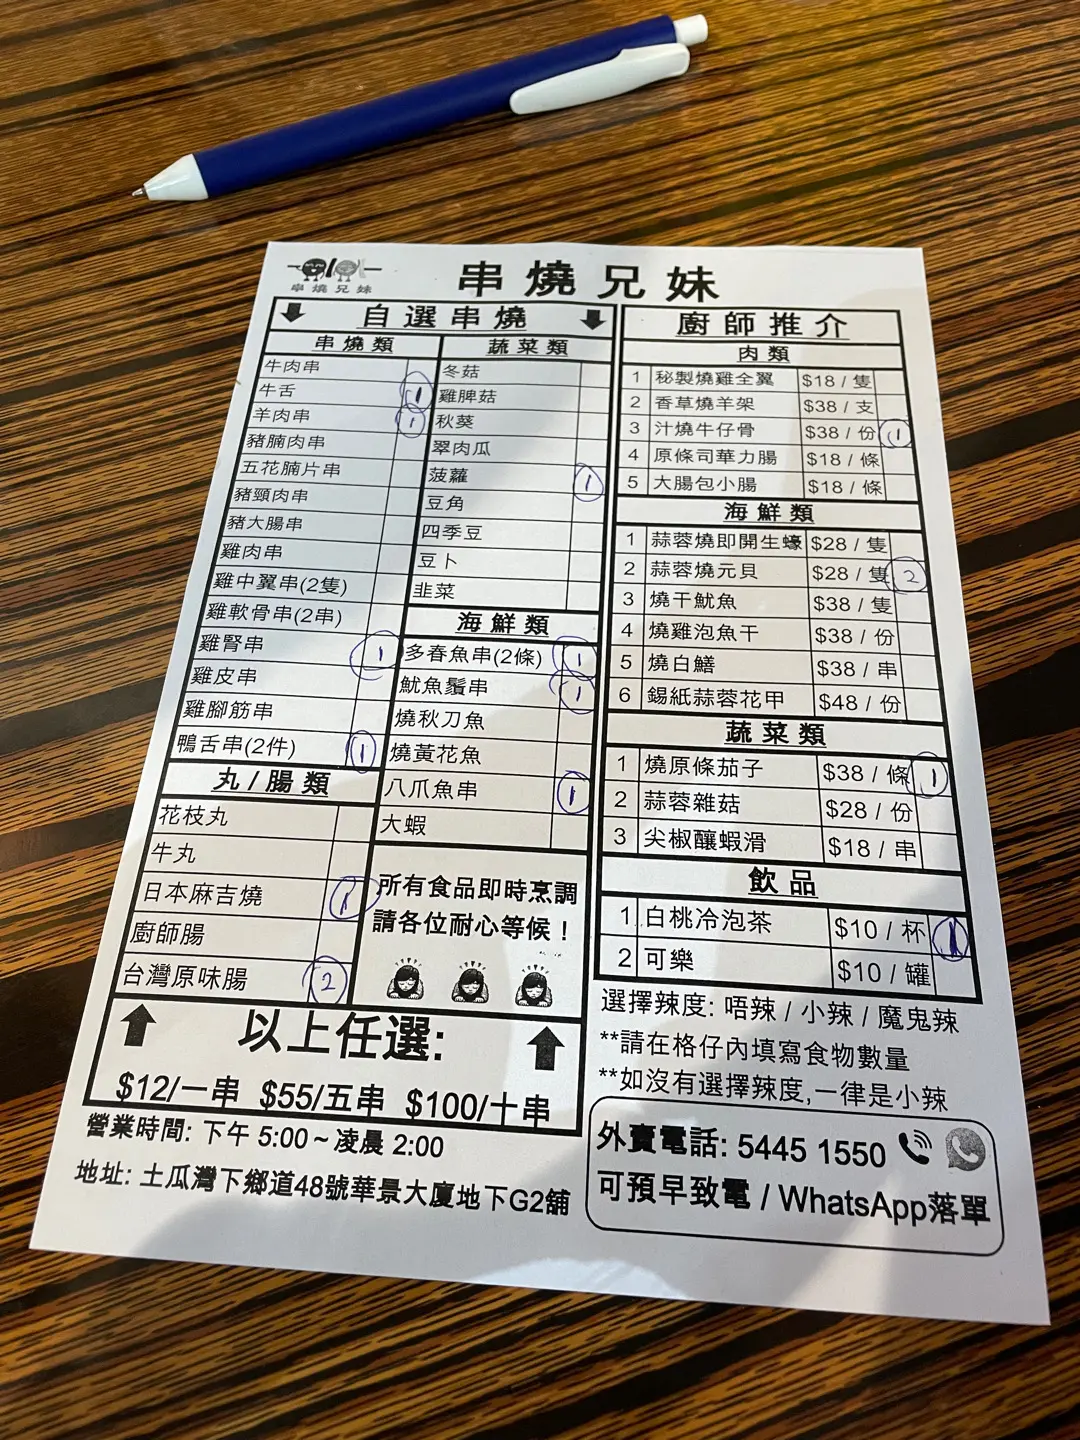 串燒兄妹
串燒兄妹
自選串燒
串燒類
牛肉串
牛舌 1
羊肉串 1
豬腩肉串
五花腩片串
豬頸肉串
豬大腸串
雞肉串
雞中翼串(2隻)
雞軟骨串(2串)
雞腎串 1
雞皮串
雞腳筋串
鴨舌串(2件) 1
丸/腸類
花枝丸
牛丸
日本麻吉燒 1
廚師腸
台灣原味腸 2
蔬菜類
冬菇
雞脾菇
秋葵
翠肉瓜
菠蘿 1
豆角
四季豆
豆卜
韭菜
海鮮類
多春魚串(2條) 1
魷魚鬚串 1
燒秋刀魚
燒黃花魚
八爪魚串 1
大蝦
所有食品即時烹調
請各位耐心等候！
以上任選:
$12/一串 $55/五串 $100/十串
營業時間: 下午 5:00 ~ 凌晨 2:00
地址: 土瓜灣下鄉道48號華景大廈地下G2舖
廚師推介
肉類
1 秘製燒雞全翼 $18 / 隻
2 香草燒羊架 $38 / 支
3 汁燒牛仔骨 $38 / 份 1
4 原條司華力腸 $18 / 條
5 大腸包小腸 $18 / 條
海鮮類
1 蒜蓉燒即開生蠔 $28 / 隻
2 蒜蓉燒元貝 $28 / 隻 2
3 燒干魷魚 $38 / 隻
4 燒雞泡魚干 $38 / 份
5 燒白鱔 $38 / 串
6 錫紙蒜蓉花甲 $48 / 份
蔬菜類
1 燒原條茄子 $38 / 條 1
2 蒜蓉雜菇 $28 / 份
3 尖椒釀蝦滑 $18 / 串
飲品
1 白桃冷泡茶 $10 / 杯 1
2 可樂 $10 / 罐
選擇辣度: 唔辣 / 小辣 / 魔鬼辣
**請在格仔內填寫食物數量
**如沒有選擇辣度,一律是小辣
外賣電話: 5445 1550
可預早致電 / WhatsApp落單